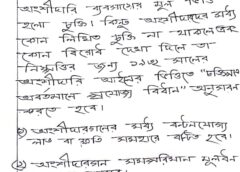 অংশীদারি ব্যবসায়ের মূল
হলো চুক্তি। কিন্তু অংশীদারদের মধ্যে
কোন লিখিত চুক্তি না থাকলেও
কোন বিরোধ দেখা দিলে তা
নিষ্পত্তির জন্য ১৯৩২ সালের
অংশীদারি আইনের ভিত্তিতে "চুক্তির
অবর্তমানে প্রযোজ্য বিধান" অনুসরণ
করতে হবে।
১) অংশীদারগণের মধ্যে বণ্টনযোগ্য
লাভ বা ক্ষতি সমহারে বণ্টিত হবে।
২) অংশীদারগণ সমপরিমাণ মূলধন